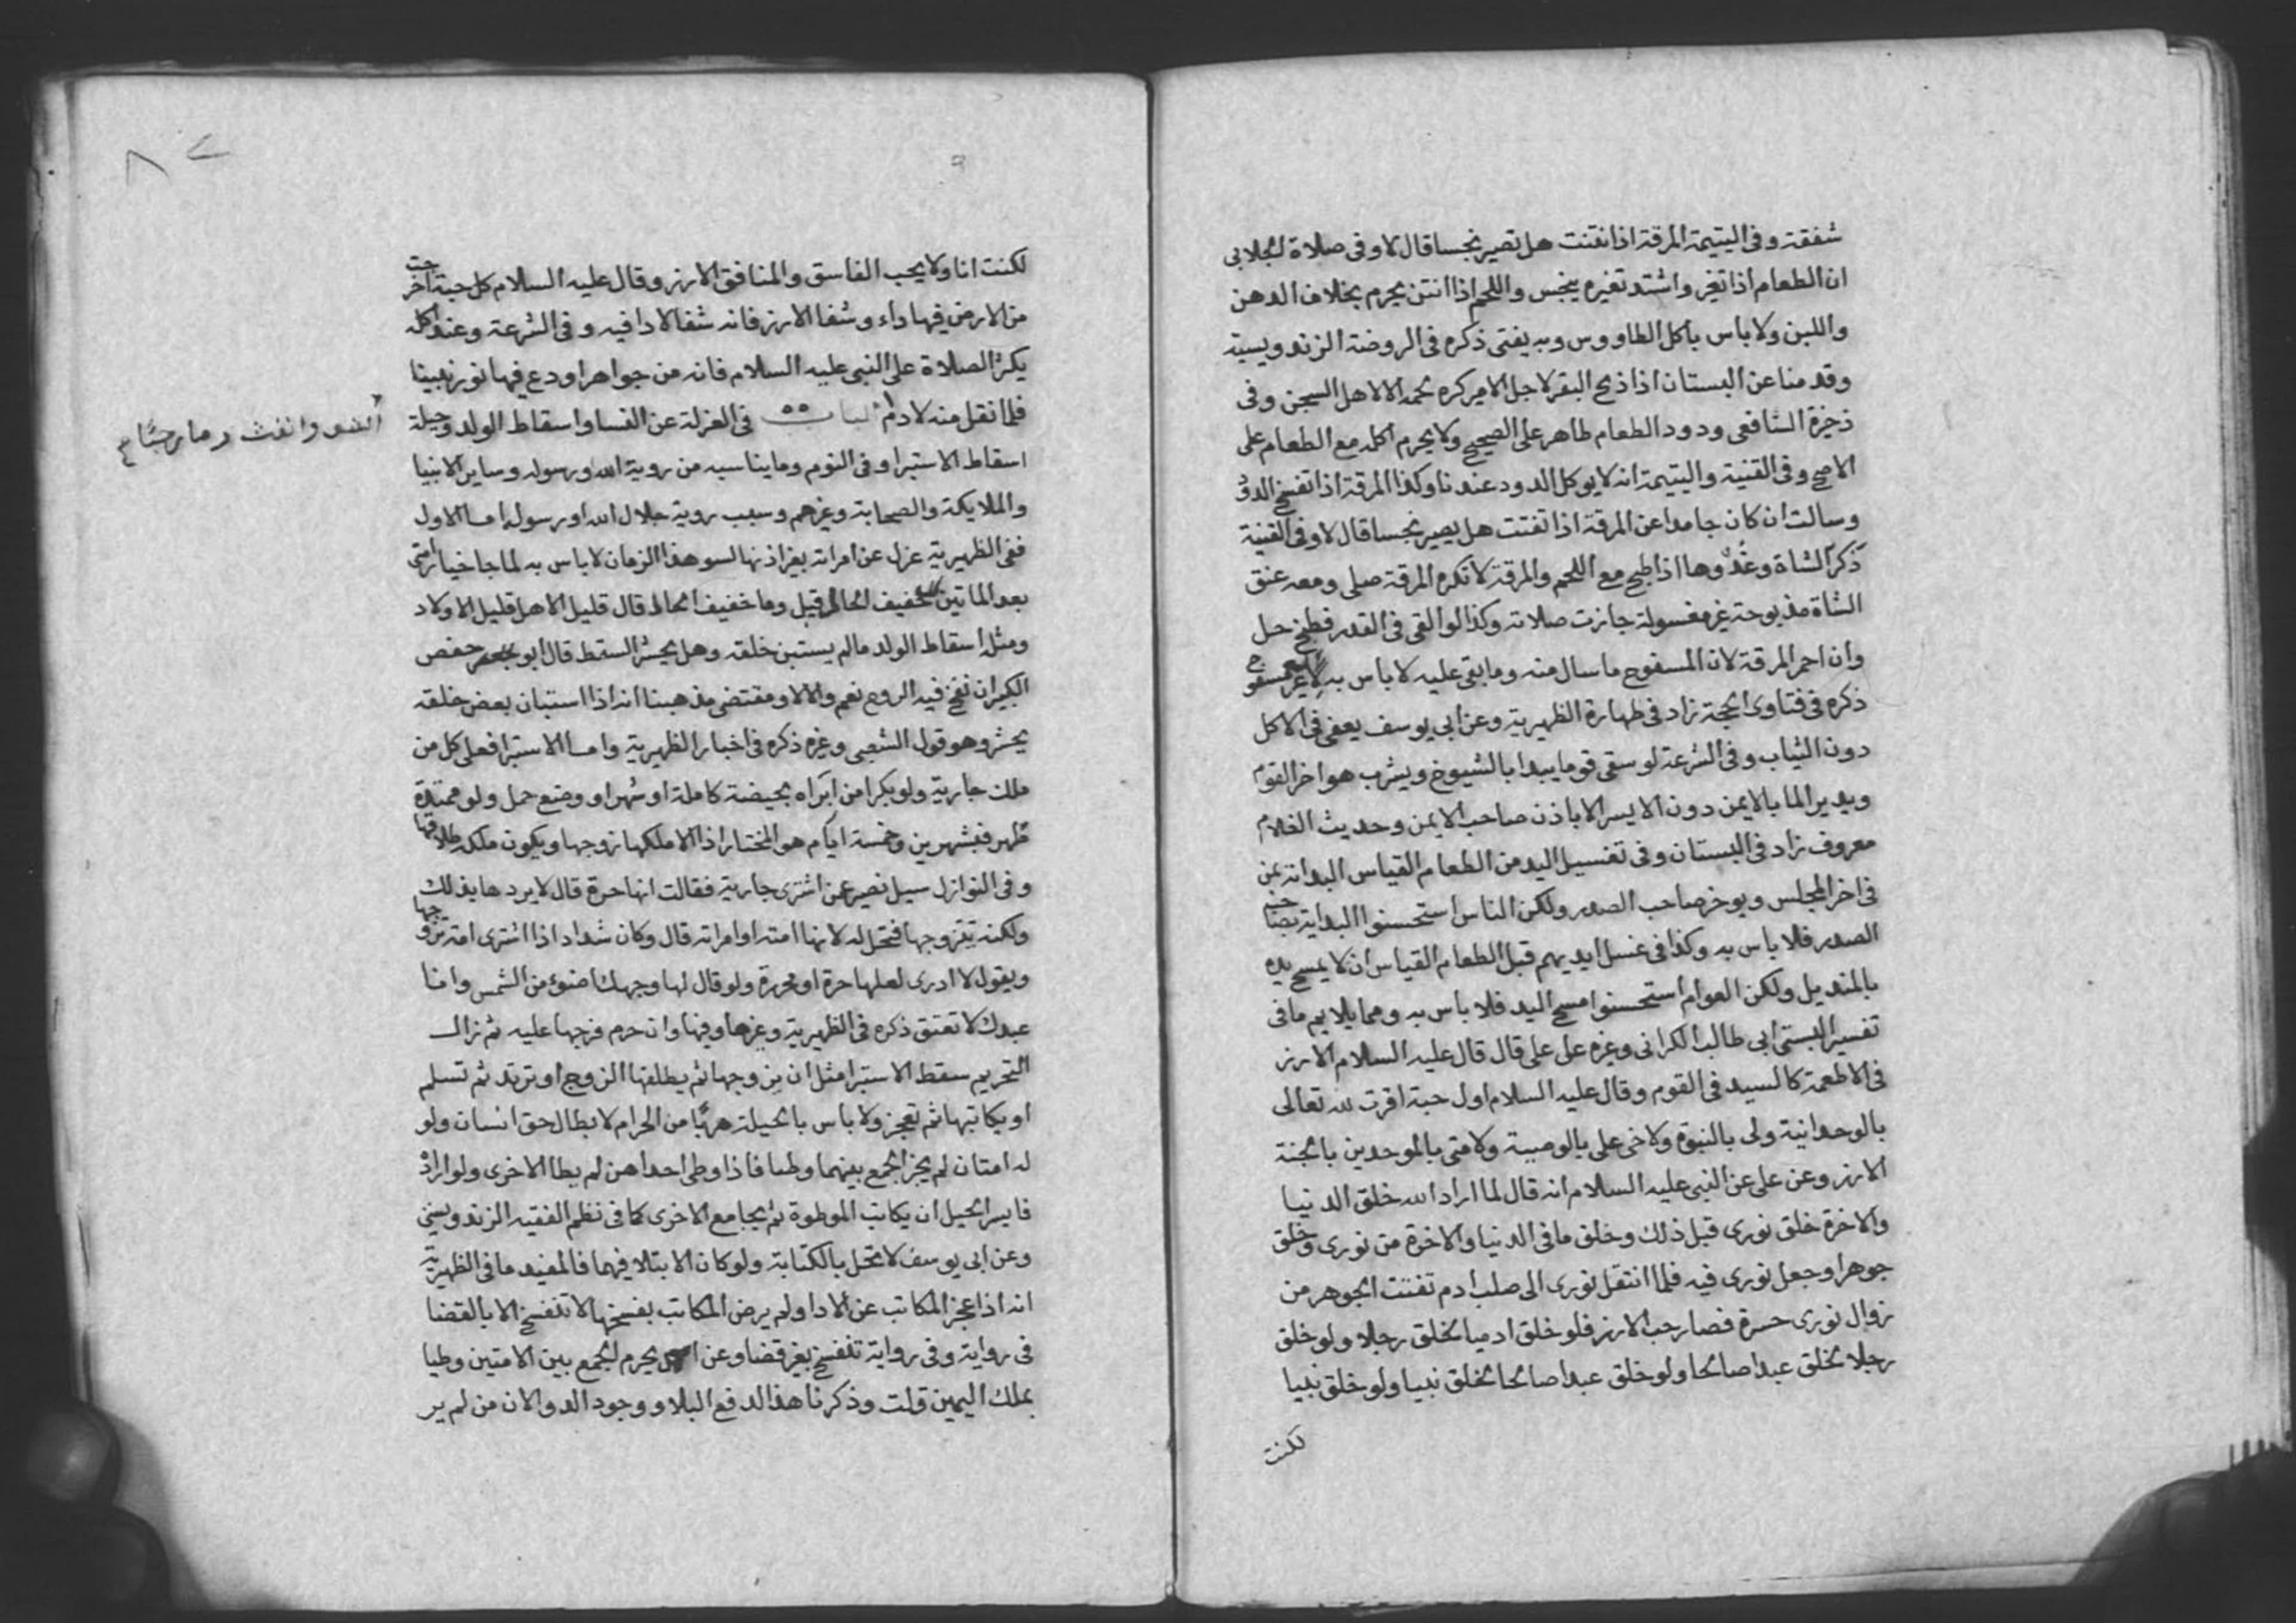 شفقة وفى اليتيمة المرقة اذا نتنت هل تصير نجسا قال لا وفى صلاة الجلابى
ان الطعام اذا تغير واشتد تغيره ينجس واللحم اذا انتن يحرم بخلاف الدهن
واللبن ولا باس باكل الطاووس وبه يفتى ذكره فى الروضة الزندويسية
وقدمنا عن البستان اذا ذبح البقر لاجل الامير كره لحمه الا لاهل السجن وفى
ذخيرة الشافعى ودود الطعام طاهر على الصحيح ولا يحرم اكله مع الطعام على
الاصح وفى القنية واليتيمة انه لا يوكل الدود عندنا وكذا المرقة اذا تفسخ الدود
وسالت ان كان جامدا عن المرقة اذا تفتت هل يصير نجسا قال لا وفى القنية
ذكر الشاة وغدوها اذا طبخ مع اللحم والمرقة لا تكره المرقة صلى ومعه عنق
الشاة مذبوحة غير مغسولة جازت صلاته وكذا لو القى فى القدر فطبخ حل
وان احمر المرقة لان المسفوح ما سال منه وما بقى عليه لا باس به لانه غير مسفوح
ذكره فى فتاوى الحجة زاد فى طهارة الظهيرية وعن ابى يوسف يعفى فى الاكل
دون الثياب وفى الشرعة لو سقى قوما يبدا بالشيوخ ويشرب هو اخر القوم
ويدير الما بالايمن دون الايسر الا باذن صاحب الايمن وحديث الغلام
معروف زاد فى البستان وفى تغسيل اليد من الطعام القياس البداءة بمن
فى اخر المجلس ويوخر صاحب الصدر ولكن الناس استحسنوا البداية بصاحب
الصدر فلا باس به وكذا فى غسل ايديهم قبل الطعام القياس ان لا يمسح يده
بالمنديل ولكن العوام استحسنوا مسح اليد فلا باس به ومما يلايم ما فى
تفسير البستى ابى طالب الكرانى وغيره على على قال قال عليه السلام الارز
فى الاطعمة كالسيد فى القوم وقال عليه السلام اول حبة اقرت لله تعالى
بالوحدانية ولى بالنبوة ولاخى على بالوصية ولامتى بالموحدين بالجنة
الارز وعن على عن النبى عليه السلام انه قال لما اراد الله خلق الدنيا
والاخرة خلق نورى قبل ذلك وخلق ما فى الدنيا والاخرة من نورى وخلق
جوهرا وجعل نورى فيه فلما انتقل نورى الى صلب ادم تفتت الجوهر من
زوال نورى حسرة فصار حب الارز فلو خلق ادميا لخلق رجلا ولو خلق
رجلا لخلق عبدا صالحا ولو خلق عبدا صالحا لخلق نبيا ولو خلق نبيا
لكنت
لكنت انا ولا يحب الفاسق والمنافق الارز وقال عليه السلام كل حبة اخرجت
من الارض فيها داء وشفا الا الارز فانه شفا لا دا فيه وفى الشرعة وعند اكله
يكثر الصلاة على النبى عليه السلام فانه من جواهر اودع فيها نور نبينا
فلما نقل منه لادم فى العزلة عن النسا واسقاط الولد وحيلة
اسقاط الاستبرا وفى النوم وما يناسبه من روية الله ورسوله وساير الانبيا
والملايكة والصحابة وغيرهم وسبب روية جلال الله او رسوله اما الاول
ففى الظهيرية عزل عن امراته بغير اذنها لسوء هذا الزمان لا باس به لما جا خيار امتى
بعد الماتين كل خفيف الحاذ قيل وما خفيف الحاذ قال قليل الاهل قليل الاولاد
ومثله اسقاط الولد ما لم يستبن خلقه وهل يحشر السقط قال ابو حفص
الكبير ان نفخ فيه الروح نعم والا لا ومقتضى مذهبنا انه اذا استبان بعض خلقه
يحشر وهو قول الشعبى وغيره ذكره فى اخبار الظهيرية واما الاستبرا فعلى كل من
ملك جارية ولو بكرا من ابراه بحيضة كاملة او شهر او وضع حمل ولو ممتدة
طهر فبشهرين وخمسة ايام هو المختار اذا الا ملكها زوجها ويكون ملكه طلاقها
وفى النوازل سيل نصير عن اشترى جارية فقالت انها حرة قال لا يردها بذلك
ولكنه يتزوجها فتحل له لانها امته او امراته قال وكان شداد اذا اشترى امة تزوجها
ويقول لا ادرى لعلها حرة او محررة ولو قال لها وجهك اضوء من الشمس وانا
عبدك لا تعتق ذكره فى الظهيرية وغيرها وفيها وان حرم فرجها عليه ثم زال
التحريم سقط الاستبرا مثل ان يزوجها ثم يطلقها الزوج او ترتد ثم تسلم
او يكاتبها ثم تعجز ولا باس بالحيلة هربا من الحرام لا بطال حق انسان ولو
له امتان لم يجز الجمع بينهما وطيا فاذا وطى احداهن لم يطا الاخرى ولو اراد
فايسر الحيل ان يكاتب الموطوة ثم يجامع الاخرى كما فى نظم الفقيه الزندويسى
وعن ابى يوسف لا تحل بالكتابة ولو كان الابتلا فيهما فالمفيد ما فى الظهيرية
انه اذا عجز المكاتب عن الادا ولم يرض المكاتب بفسخها لا تنفسخ الا بالقضا
فى رواية وفى رواية تنفسخ بغير قضا وعن يحرم الجمع بين الامتين وطيا
بملك اليمين قلت وذكرنا هذا لدفع البلا ووجود الدوا لان من لم ير